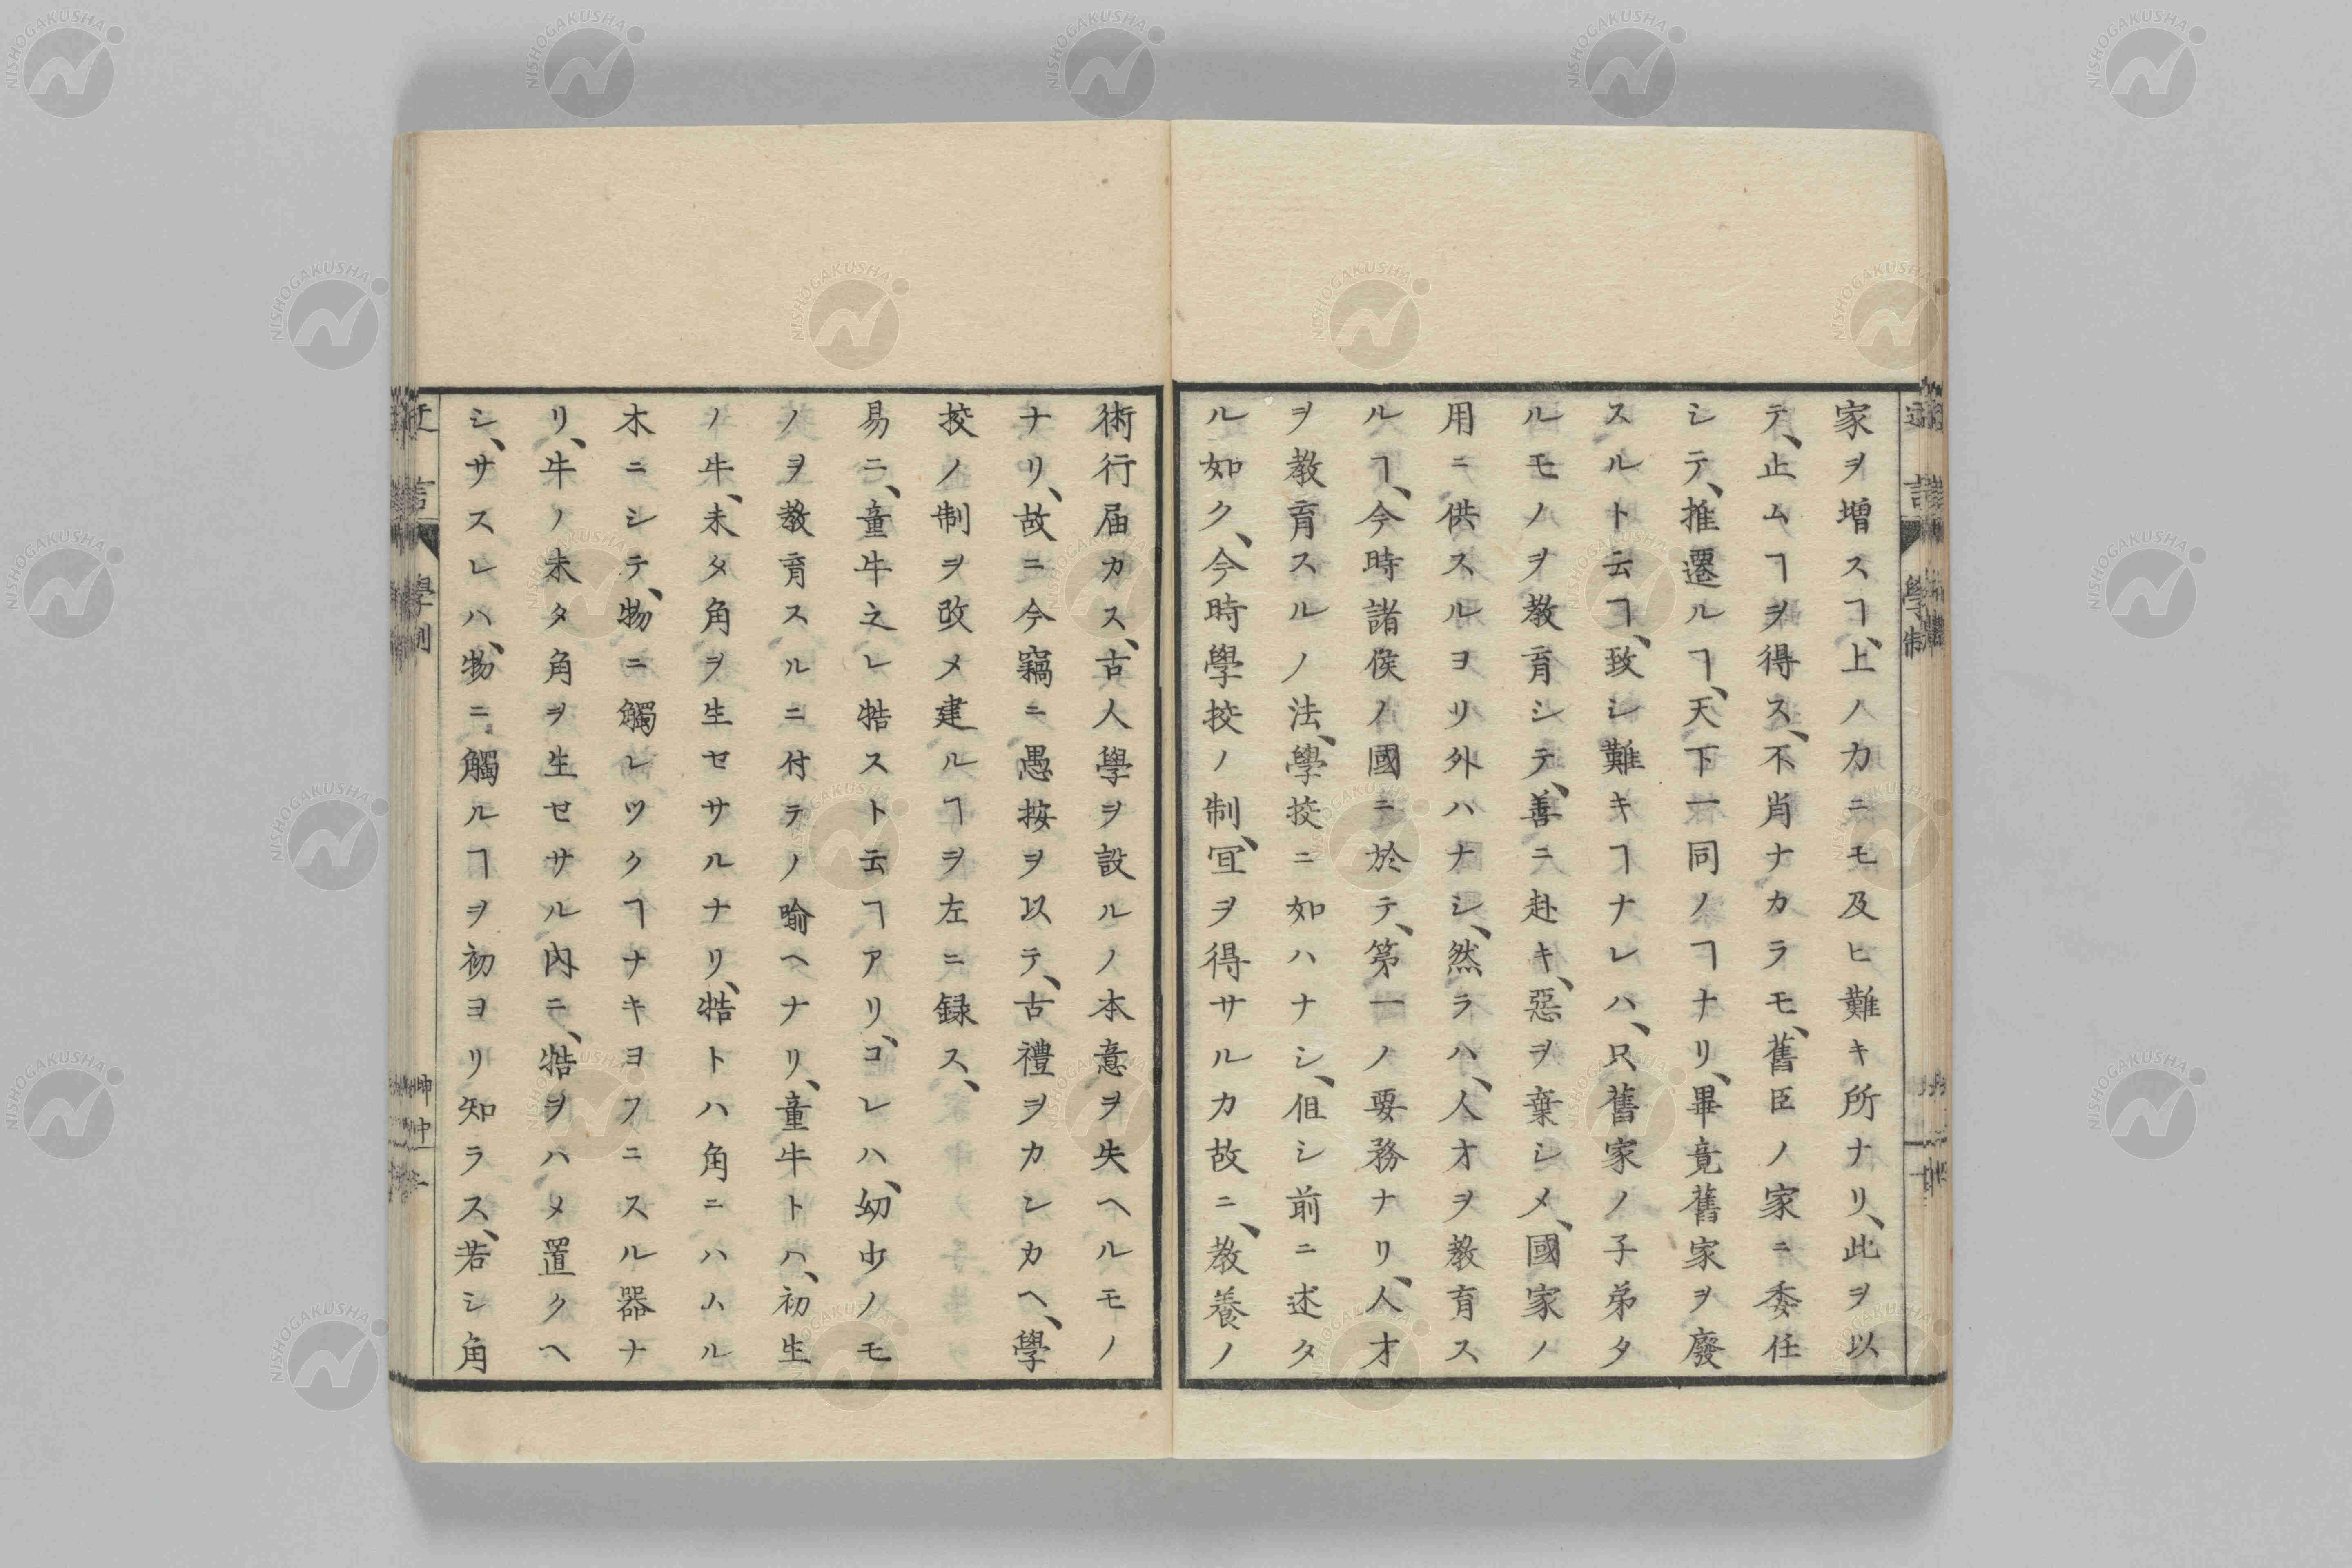 家ヲ増スヿ、上ノ力ニモ及ヒ難キ所ナリ、此ヲ以
テ、止ムヿヲ得ス、不肖ナカラモ、舊臣ノ家ニ委任
シテ、推遷ルヿ、天下一同ノヿナリ、畢竟舊家ヲ廢
スルト云ヿ、致シ難キヿナレハ、只舊家ノ子弟タ
ルモノヲ教育シテ、善ニ赴キ、惡ヲ棄シメ、國家ノ
用ニ供スルヨリ外ハナシ、然ラハ、人才ヲ教育ス
ルヿ、今時諸侯ノ國ニ於テ、第一ノ要務ナリ、人才
ヲ教育スルノ法、學挍ニ如ハナシ、但シ前ニ述タ
ル如ク、今時學挍ノ制、宜ヲ得サルカ故ニ、教養ノ
術行届カス、古人學ヲ設ルノ本意ヲ失ヘルモノ
ナリ、故ニ今竊ニ愚按ヲ以テ、古禮ヲカンカヘ、學
挍ノ制ヲ改メ建ルヿヲ左ニ録ス、
易ニ、童牛之レ牿スト云ヿアリ、コレハ、幼少ノモ
ノヲ教育スルニ付テノ喻ヘナリ、童牛トハ、初生
ノ牛、未タ角ヲ生セサルナリ、牿トハ角ニハムル
木ニシテ、物ニ觸レツクヿナキヨフニスル器ナ
リ、牛ノ未タ角ヲ生セサル内ニ、牿ヲハメ置クヘ
シ、サスレハ、物ニ觸ルヿヲ初ヨリ知ラス、若シ角
學制
NISHOGAKUSHA